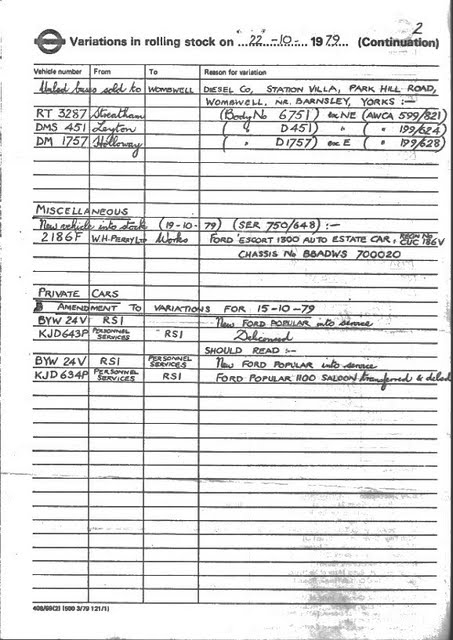 2
Variations in rolling stock on 22-10- 1979 (Continuation)
Vehicle number From To Reason for variation
United buses sold to WOMBWELL DIESEL CO, STATION VILLA, PARK HILL ROAD,
WOMBWELL. NR. BARNSLEY, YORKS :-
RT 3287 Streatham (Body No 6751) ex NE (AWCA 599/821)
DMS 451 Leyton ( " D451) " ( " 199/624)
DM 1757 Holloway ( " D1757) ex E ( " 199/628)
MISCELLANEOUS
New vehicle into stock (19-10-79) (SER 750/648) :-
2186F W.H. PERRY LTD Works FORD 'ESCORT 1300 AUTO ESTATE CAR, REGN No CUC 186V
CHASSIS No BBADWS 700020
PRIVATE CARS
AMENDMENT TO VARIATIONS FOR 15-10-79
BYW 24V RSI New FORD POPULAR into service
KJD643P PERSONNEL SERVICES RSI Delicensed
SHOULD READ :-
BYW 24V RSI PERSONNEL SERVICES New FORD POPULAR into service
KJD 634P PERSONNEL SERVICES RSI FORD POPULAR 1100 SALOON transferred & delicd
409/69(2) (500 3/79 121/1)